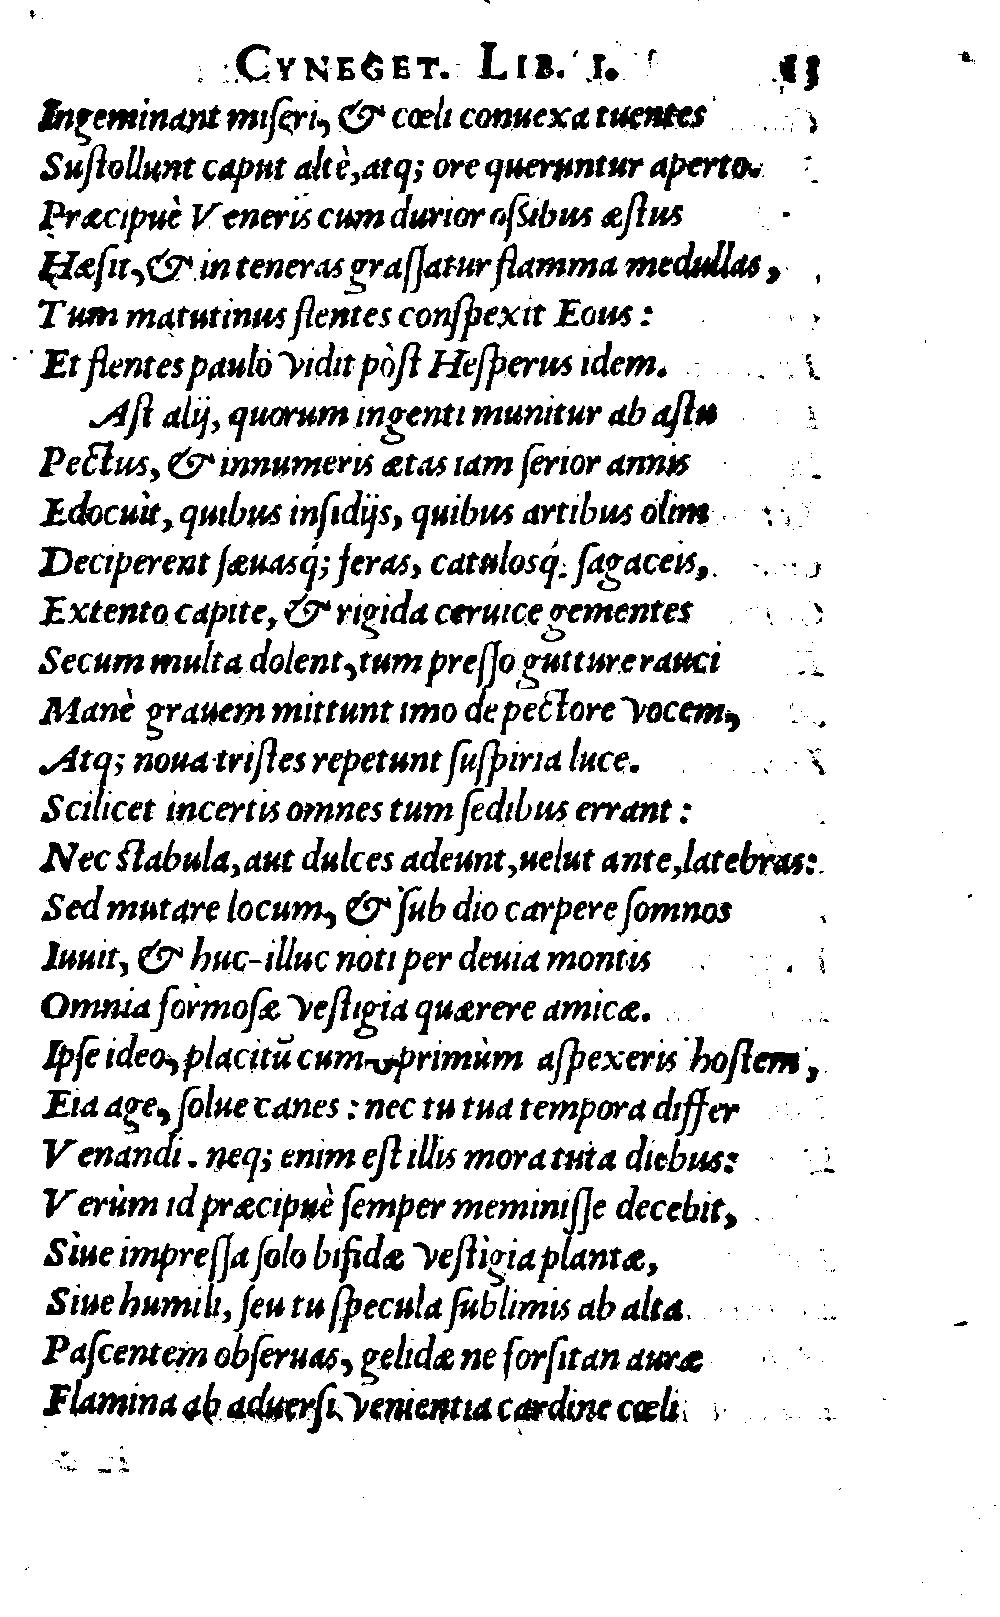 CYNEGET. LIB. I. 13
Ingeminant miſeri, & cœli conuexa tuentes
Suſtollunt caput altè, atq; ore queruntur aperto.
Præcipuè Veneris cum durior oſsibus æſtus
Hæſit, & in teneras graſſatur flamma medullas,
Tum matutinus flentes conſpexit Eous:
Et flentes paulò vidit pòſt Heſperus idem.
Aſt alij, quorum ingenti munitur ab aſtu
Pectus, & innumeris ætas iam ſerior annis
Edocuit, quibus inſidijs, quibus artibus olim
Deciperent ſæuasq́; feras, catulosq́; ſagaceis,
Extento capite, & rigida ceruice gementes
Secum multa dolent, tum preſſo gutture rauci
Manè grauem mittunt imo de pectore vocem,
Atq; noua triſtes repetunt ſuſpiria luce.
Scilicet incertis omnes tum ſedibus errant:
Nec ſtabula, aut dulces adeunt, uelut ante, latebras:
Sed mutare locum, & ſub dio carpere ſomnos
Iuuit, & huc-illuc noti per deuia montis
Omnia formoſæ veſtigia quærere amicæ.
Ipſe ideo, placitū cum primùm aſpexeris hoſtem,
Eia age, ſolue canes: nec tu tua tempora differ
Venandi. neq; enim eſt illis mora tuta diebus:
Verùm id præcipuè ſemper meminiſſe decebit,
Siue impreſſa ſolo bifidæ veſtigia plantæ,
Siue humili, ſeu tu ſpecula ſublimis ab alta
Paſcentem obſeruas, gelidæ ne forſitan auræ
Flamina ab aduerſi venientia cardine cœli